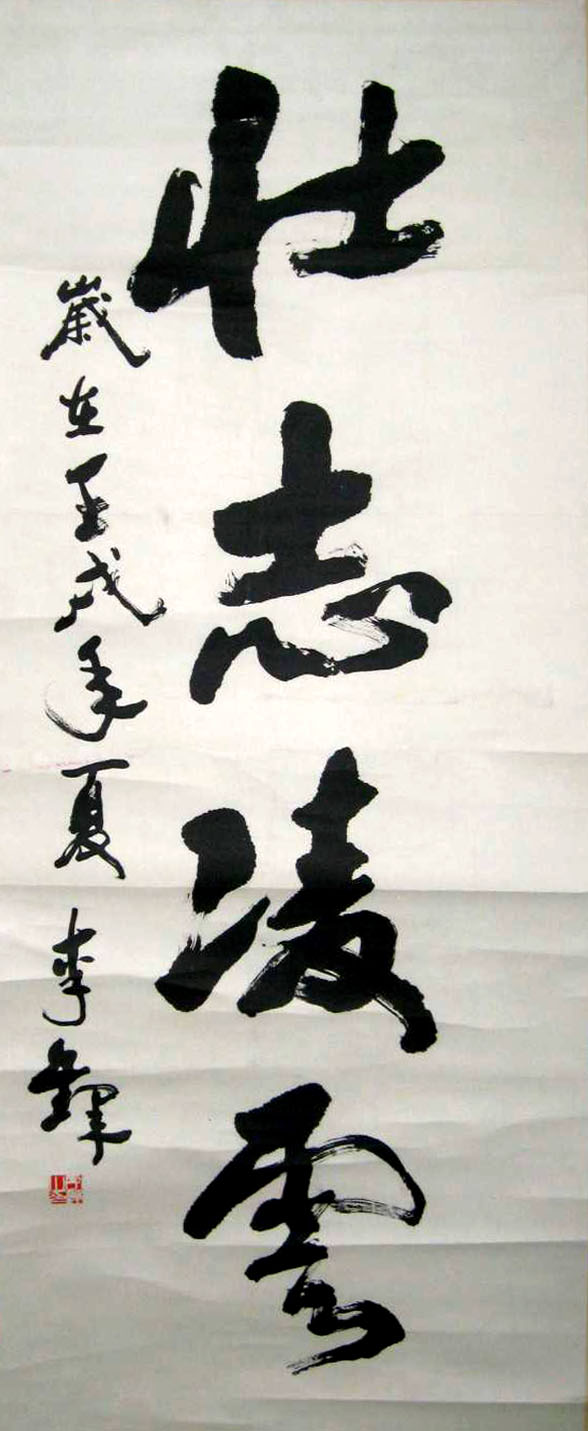 壮志凌雲
歲在壬戌年夏 李鐸